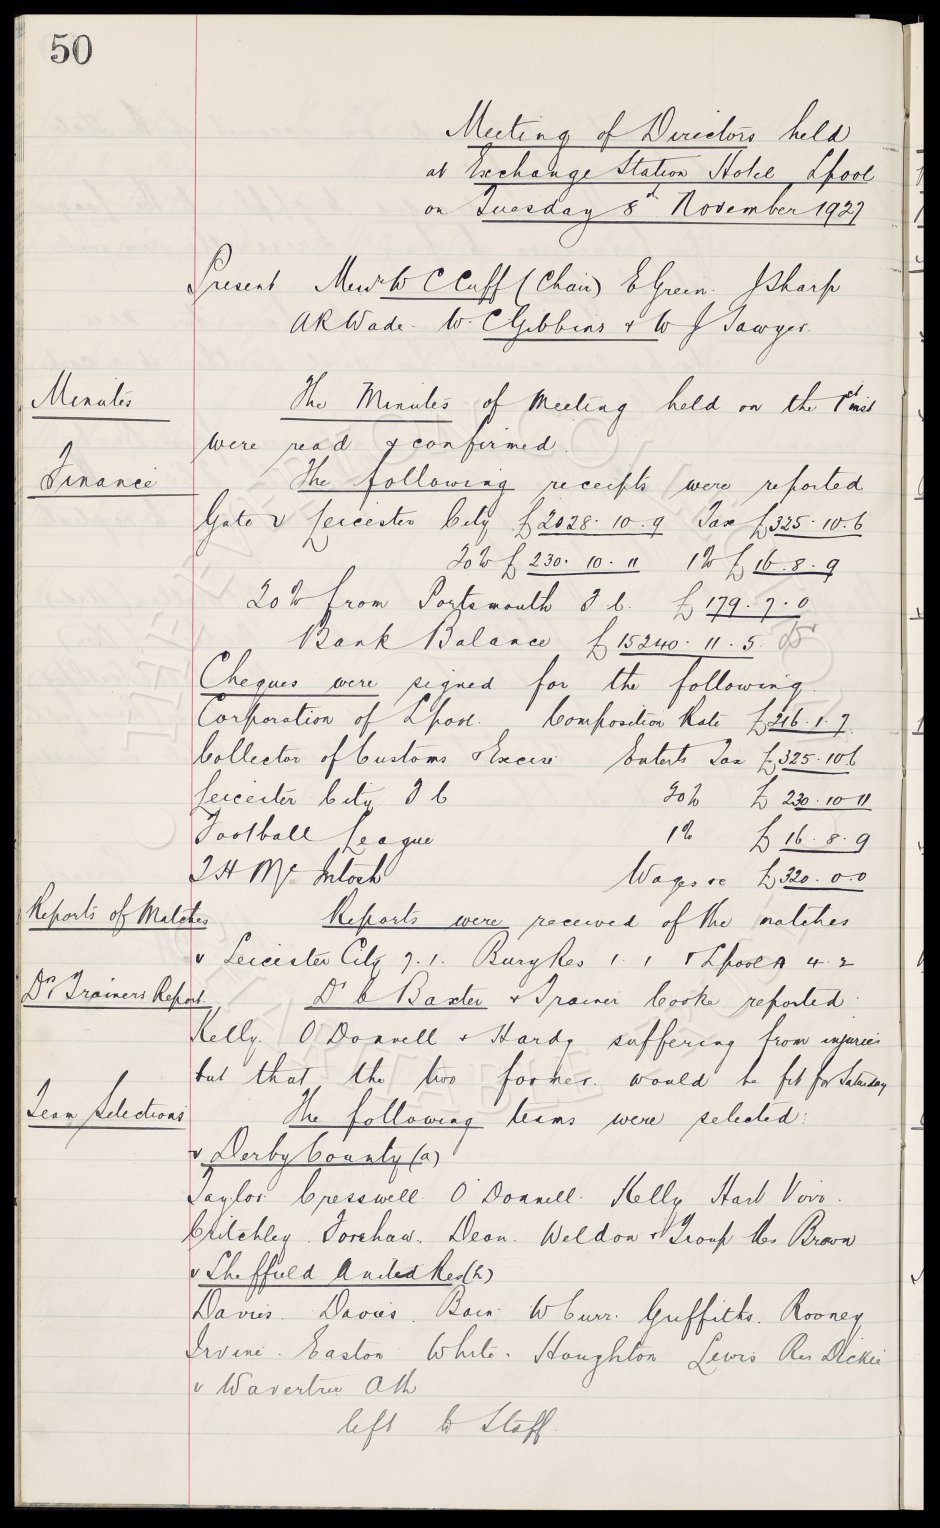 50
Meeting of Directors held
at Exchange Station Hotel Lpool
on Tuesday 8th November 1927
Present Messrs W C Cuff (Chair) E Green. J Sharp
A R Wade. W. C Gibbins & W J Sawyer.
Minutes
The Minutes of Meeting held on the 1st inst
were read & confirmed.
Finance
The following receipts were reported
Gate v Leicester City £2028. 10. 9 Tax £325. 10. 6
20% £230. 10. 11 1% £16. 8. 9
20% from Portsmouth F C. £179. 7. 0
Bank Balance £15240. 11. 5. Dr
Cheques were signed for the following.
Corporation of Lpool. Composition Rate £216. 1. 7.
Collector of Customs & Excise Enterts Tax £325. 10. 6
Leicester City F C 20% £230. 10. 11
Football League 1% £16. 8. 9
T H Mc Intosh Wages &c £320. 0. 0
Reports of Matches
Reports were received of the matches
v Leicester City 7. 1. Bury Res 1. 1 & Lpool A 4. 2
Drs & Trainers Report
Dr C Baxter & Trainer Cooke reported
Kelly. O'Donnell & Hardy suffering from injuries
but that the two former would be fit for Saturday
Team Selections
The following teams were selected:
v Derby County (a)
Taylor Cresswell. O'Donnell. Kelly Hart Virr.
Critchley. Forshaw. Dean. Weldon & Troup Res Brown
v Sheffield United Res (h)
Davies. Davies. Bain. W Curr. Griffiths. Rooney
Irvine. Easton White. Houghton Lewis Res Dickie
v Wavertree Ath
left to Staff.